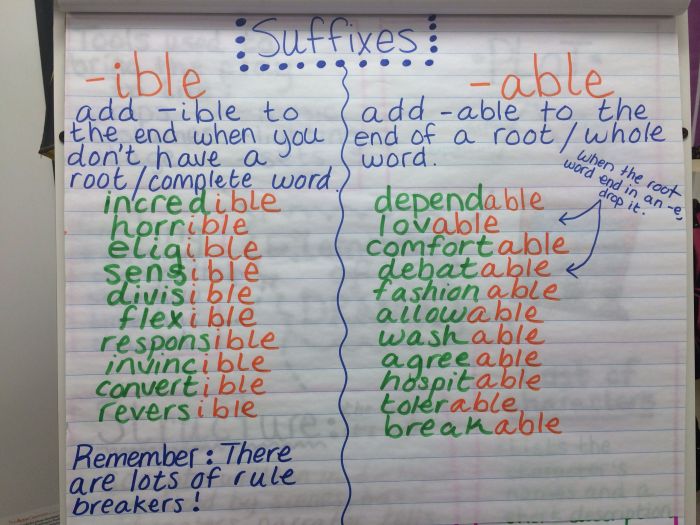 Suffixes
-ible
add -ible to
the end when you
don't have a
root/complete word.
incredible
horrible
eligible
sensible
divisible
flexible
responsible
invincible
convertible
reversible
Remember: There
are lots of rule
breakers!
-able
add -able to the
end of a root/whole
word.
when the root
word end in an -e,
drop it.
dependable
lovable
comfortable
debatable
fashionable
allowable
washable
agreeable
hospitable
tolerable
breakable